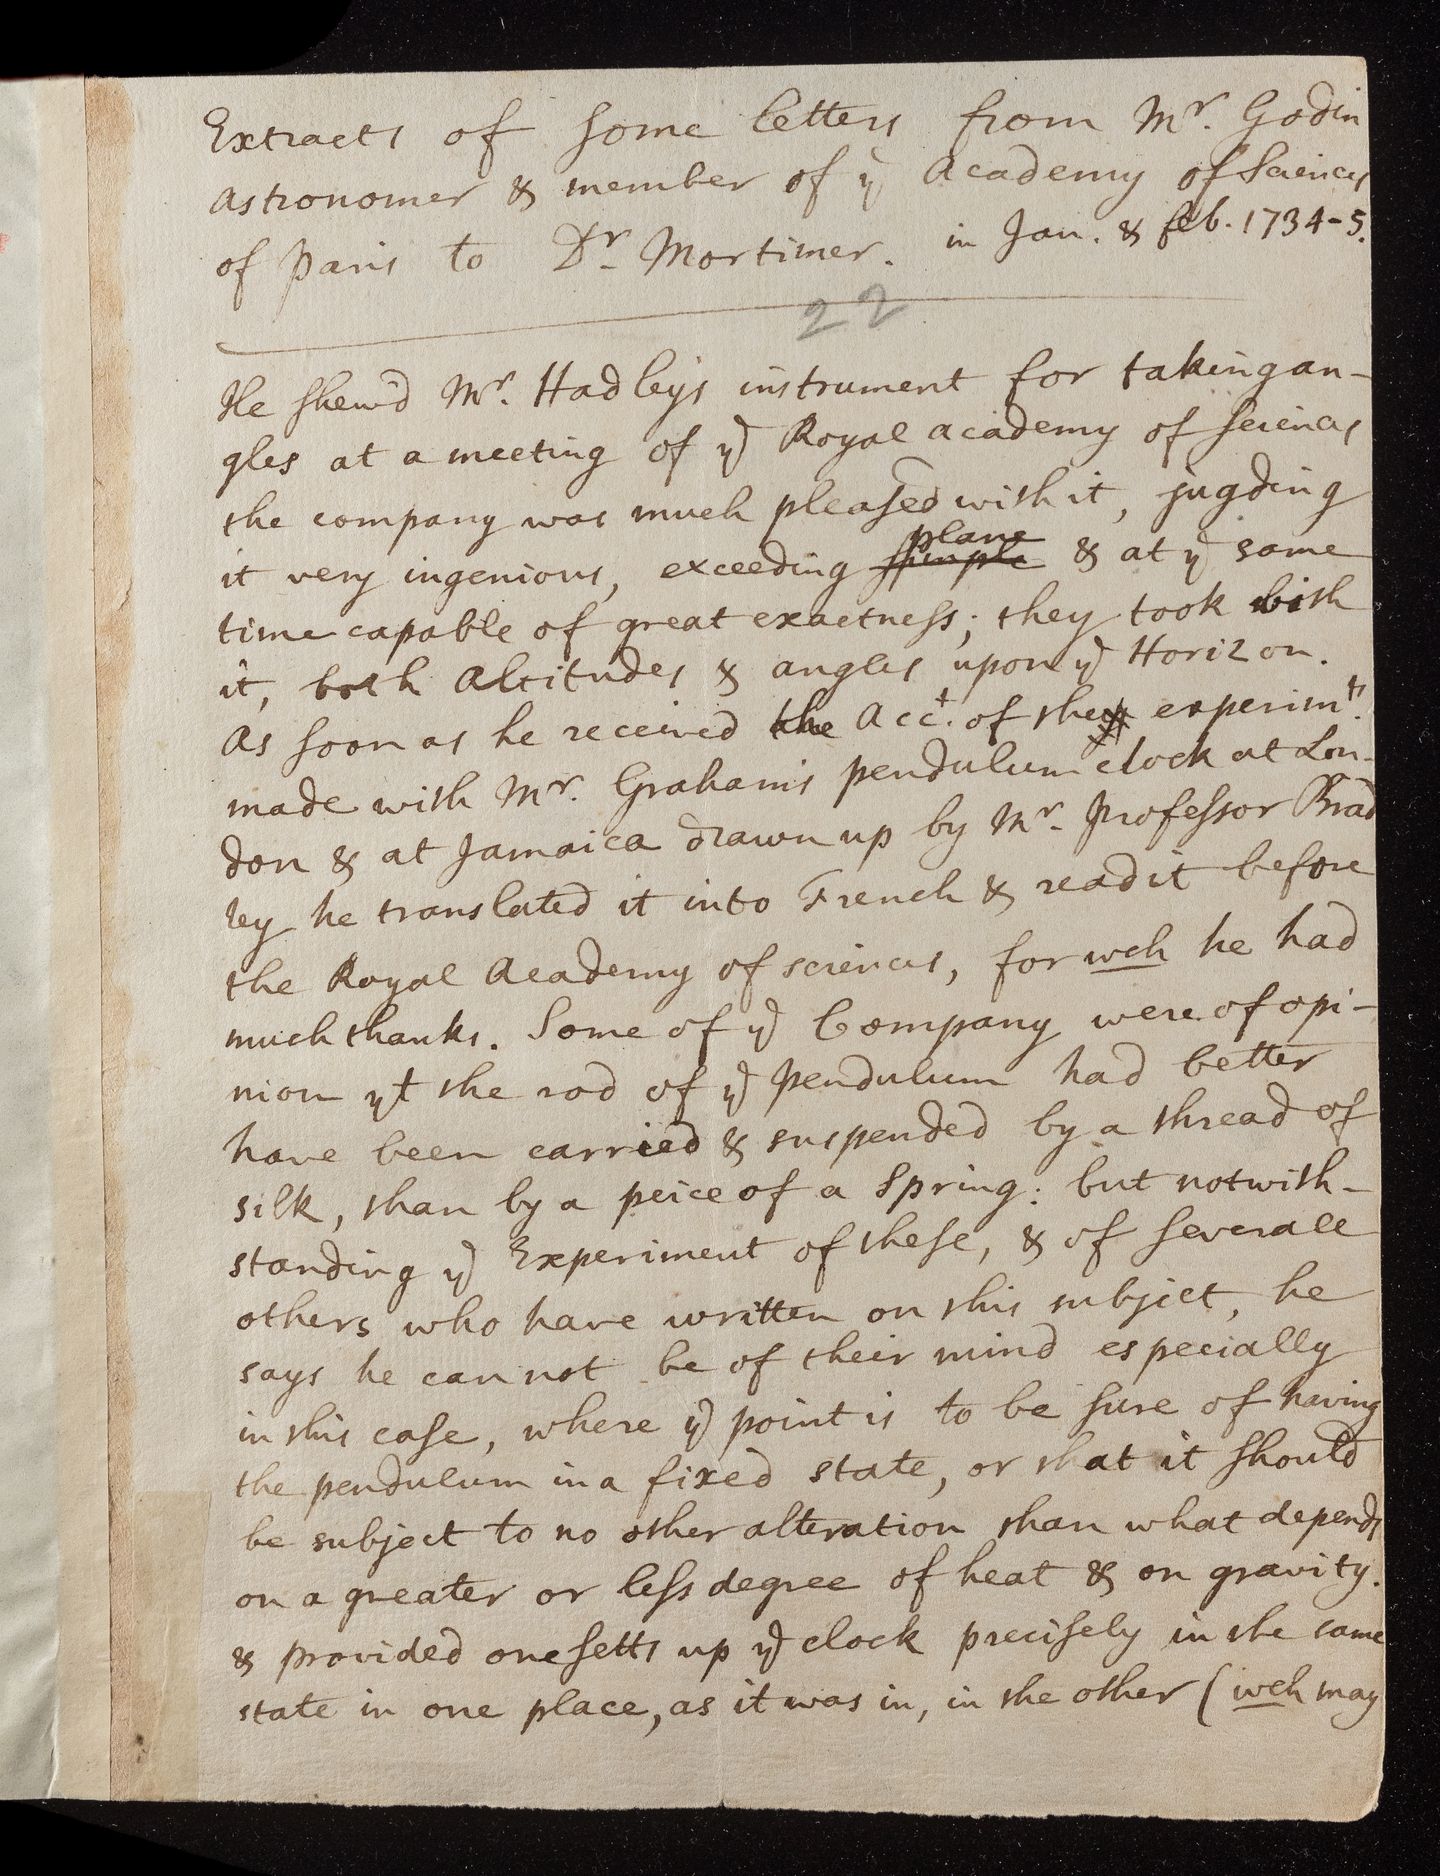 Extracts of some letters from Mr. Godin
Astronomer & member of ye Academy of Sciences
of Paris to Dr. Mortimer. in Jan. & feb. 1734-5.
22
He shew'd Mr. Hadleys instrument for taking an-
gles at a meeting of ye Royal Academy of sciences
the company was much pleased with it, jugding
plane
it very ingenious, exceeding simple & at ye same
time capable of great exactness; they took with
it, both Altitudes & angles upon ye Horizon.
As soon as he received the Acct. of the experimts.
made with Mr. Graham's pendulum clock at Lon-
don & at Jamaica drawn up by Mr. Professor Brad
ley he translated it into French & read it before
the Royal Academy of sciences, for wch he had
much thanks. Some of ye Company were of opi-
nion yt the rod of ye pendulum had better
have been carried & suspended by a thread of
silk, than by a peice of a Spring: but notwith-
standing ye Experiment of these, & of severall
others who have written on this subject, he
says he can not be of their mind especially
in this case, where ye point is to be sure of having
the pendulum in a fixed state, or that it should
be subject to no other alteration than what depends
on a greater or less degree of heat & on gravity.
& provided one setts up ye clock precisely in the same
state in one place, as it was in, in the other (wch may